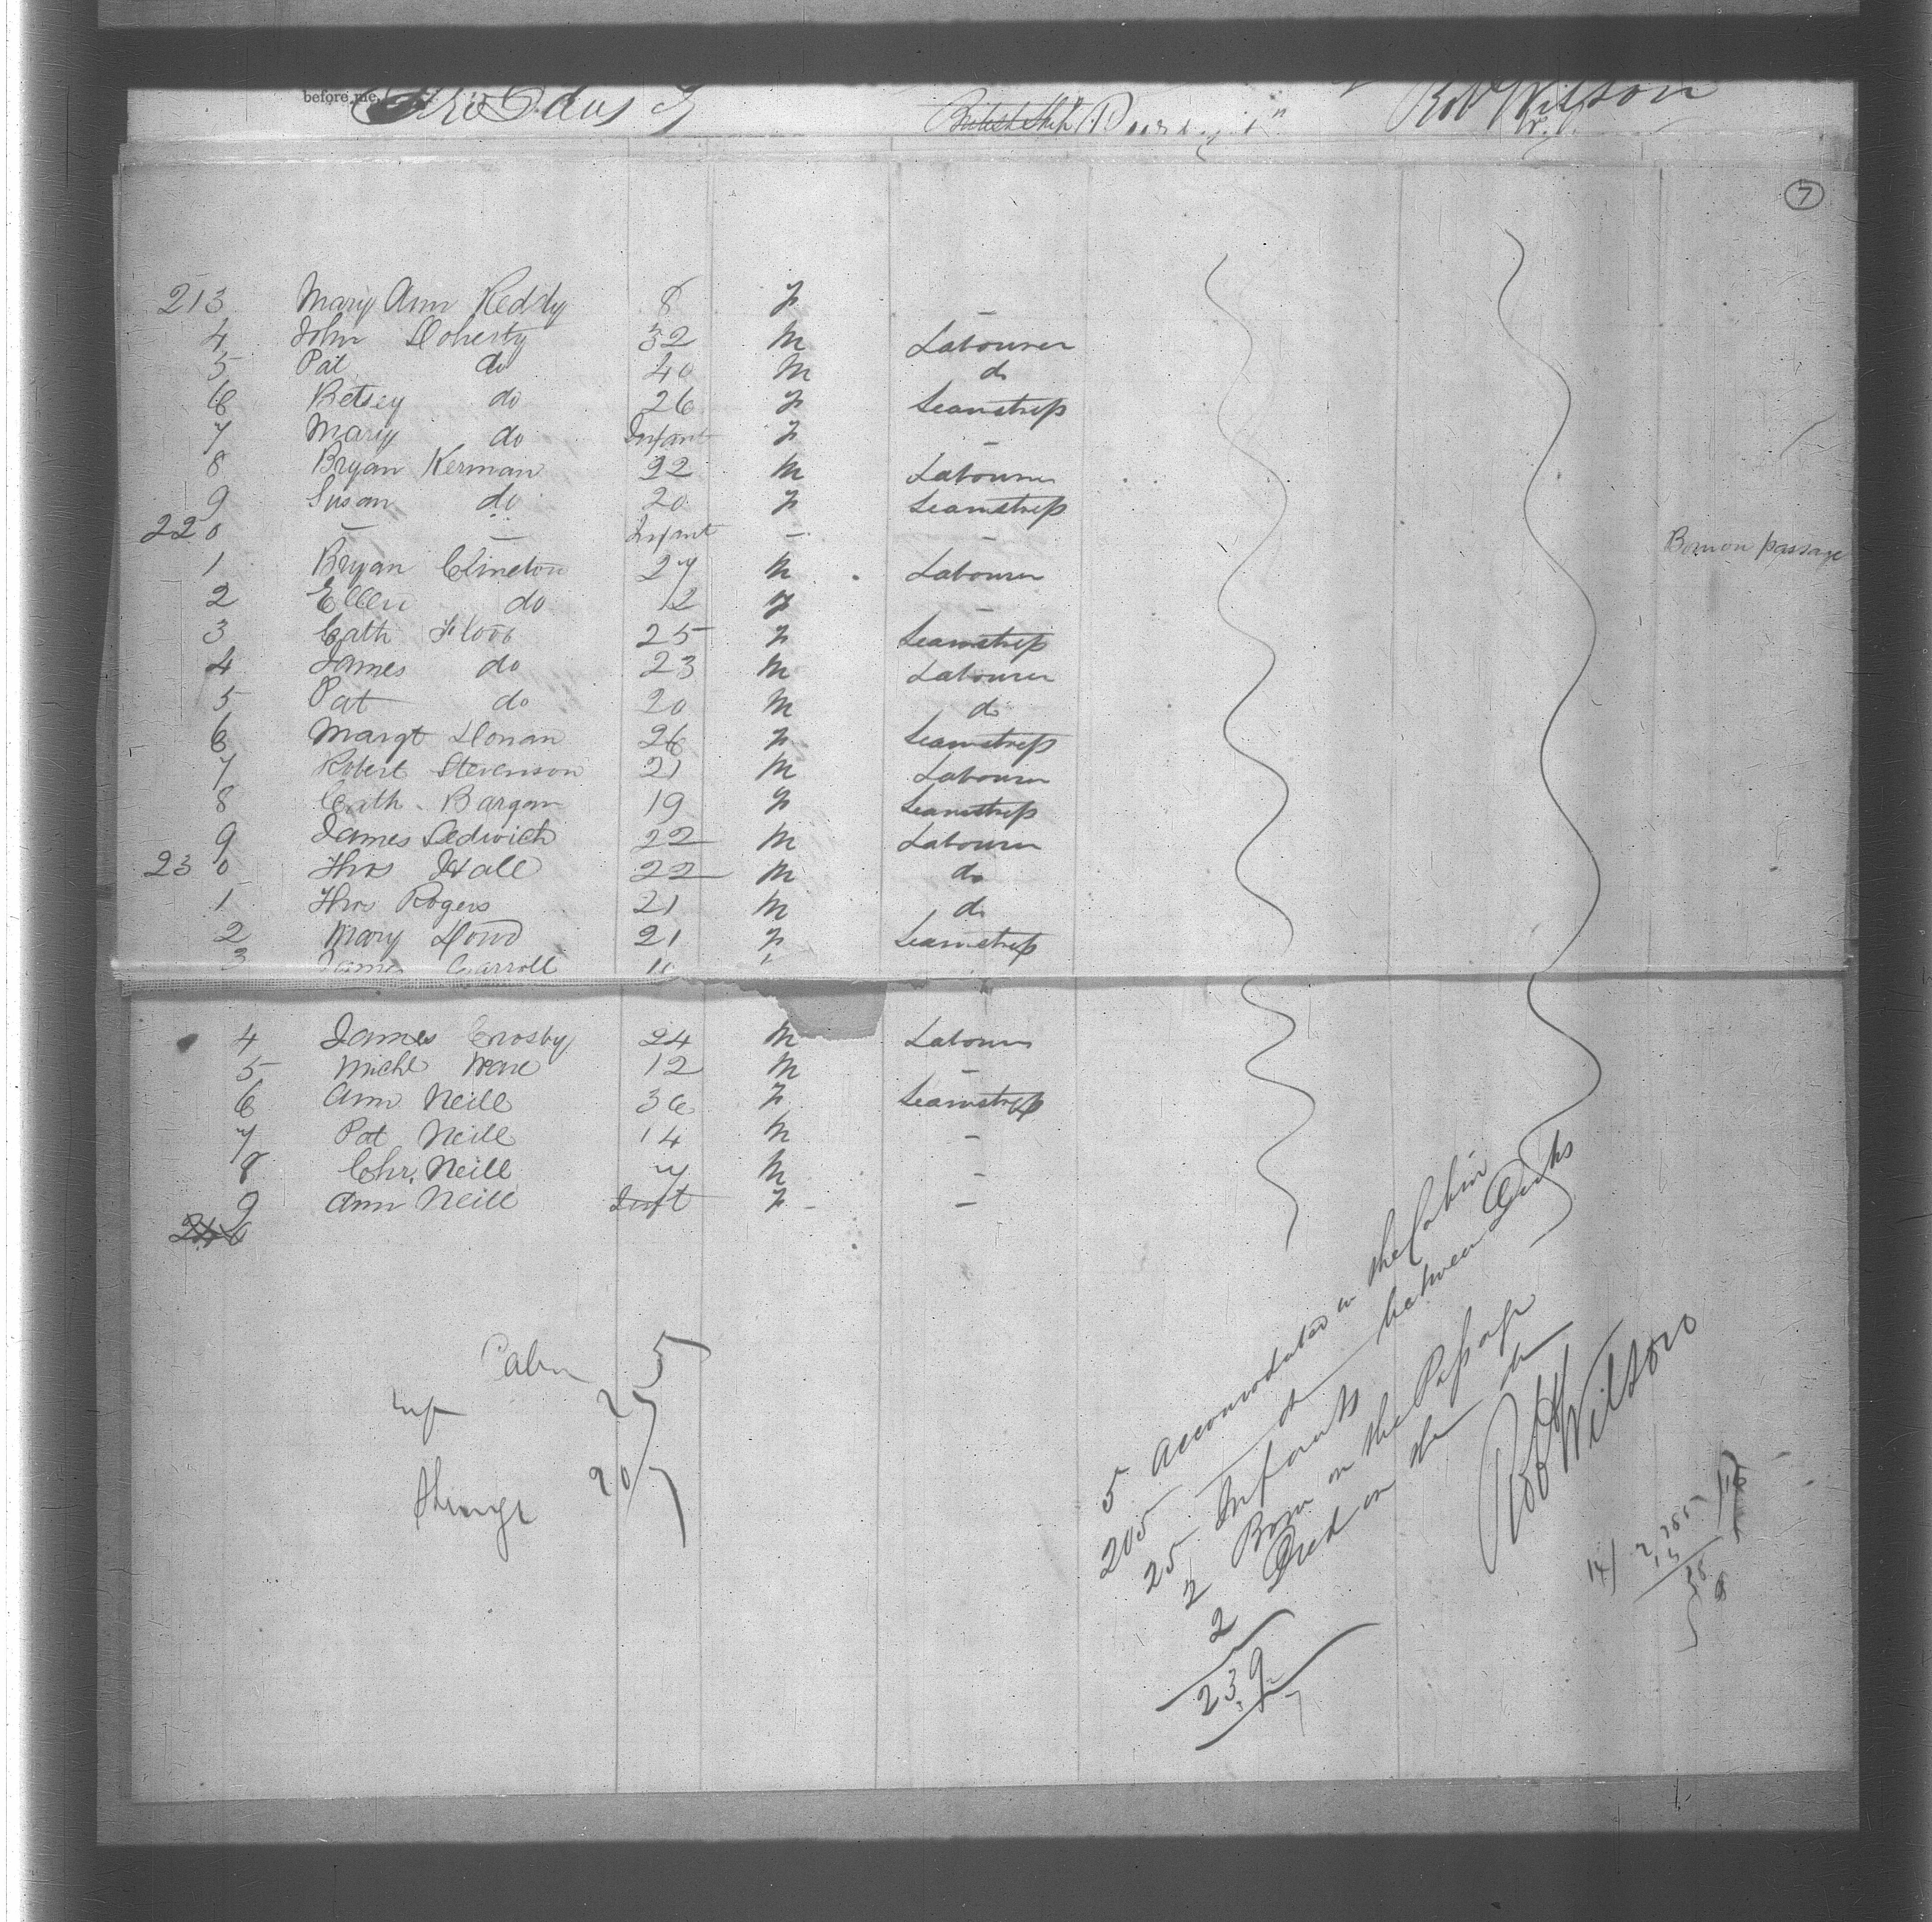 before me,
Rob Wilson
7
213 Mary Ann Reddy 8 F –
4 John Doherty 32 M Labourer
5 Pat do 40 M do
6 Betsey do 26 F Seamstress
7 Mary do Infant F –
8 Bryan Kerman 22 M Labourer
9 Susan do 20 F Seamstress
220 – – Infant – – Born on passage
1 Bryan Clineton 27 M Labourer
2 Ellen do 12 F –
3 Cath Flood 25 F Seamstress
4 James do 23 M Labourer
5 Pat do 20 M do
6 Margt Donan 26 F Seamstress
7 Robert Stevenson 21 M Labourer
8 Cath. Bargan 19 F Seamstress
9 James Ledwich 22 M Labourer
230 Thos Hall 22 M do
1 Thos Rogers 21 M do
2 Mary Dowd 21 F Seamstress
3 James Carroll
4 James Crosby 24 M Labourer
5 Michl 12 M –
6 Ann Neill 36 F Seamstress
7 Pat Neill 14 M –
8 Chr. Neill 7 M –
9 Ann Neill Inft F –
Cabin 5
Inf 27
207
5 accomodated in the Cabin
205 do between Decks
25 Infants
2 Born on the Passage
2 Died on the do
239
Robt Wilson